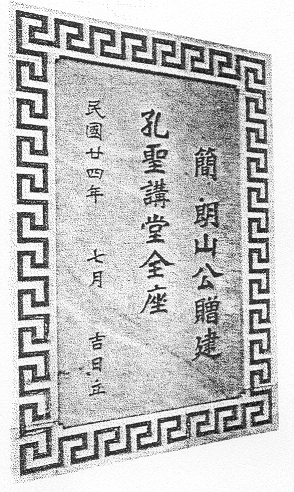 簡朗山公贈建
孔聖講堂全座
民國廿四年 七月 吉日立